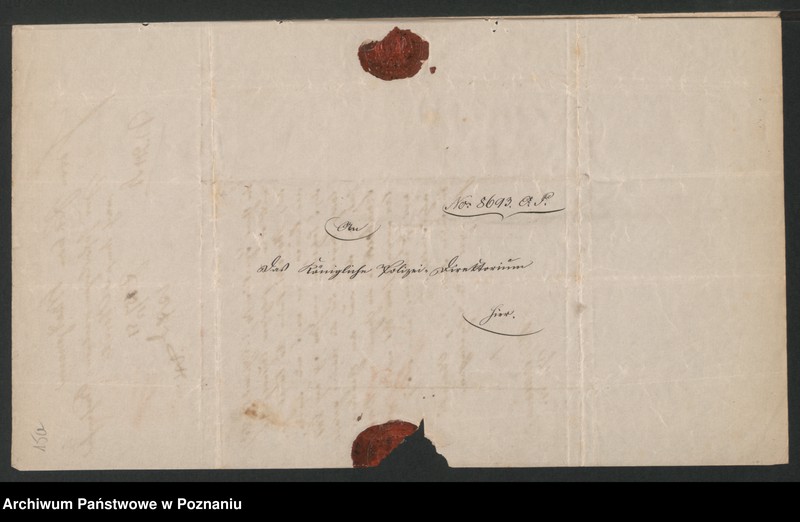 No. 8693. A. P.
An
Das Königliche Polizei-Direktorium
hier.
15a
Archiwum Państwowe w Poznaniu